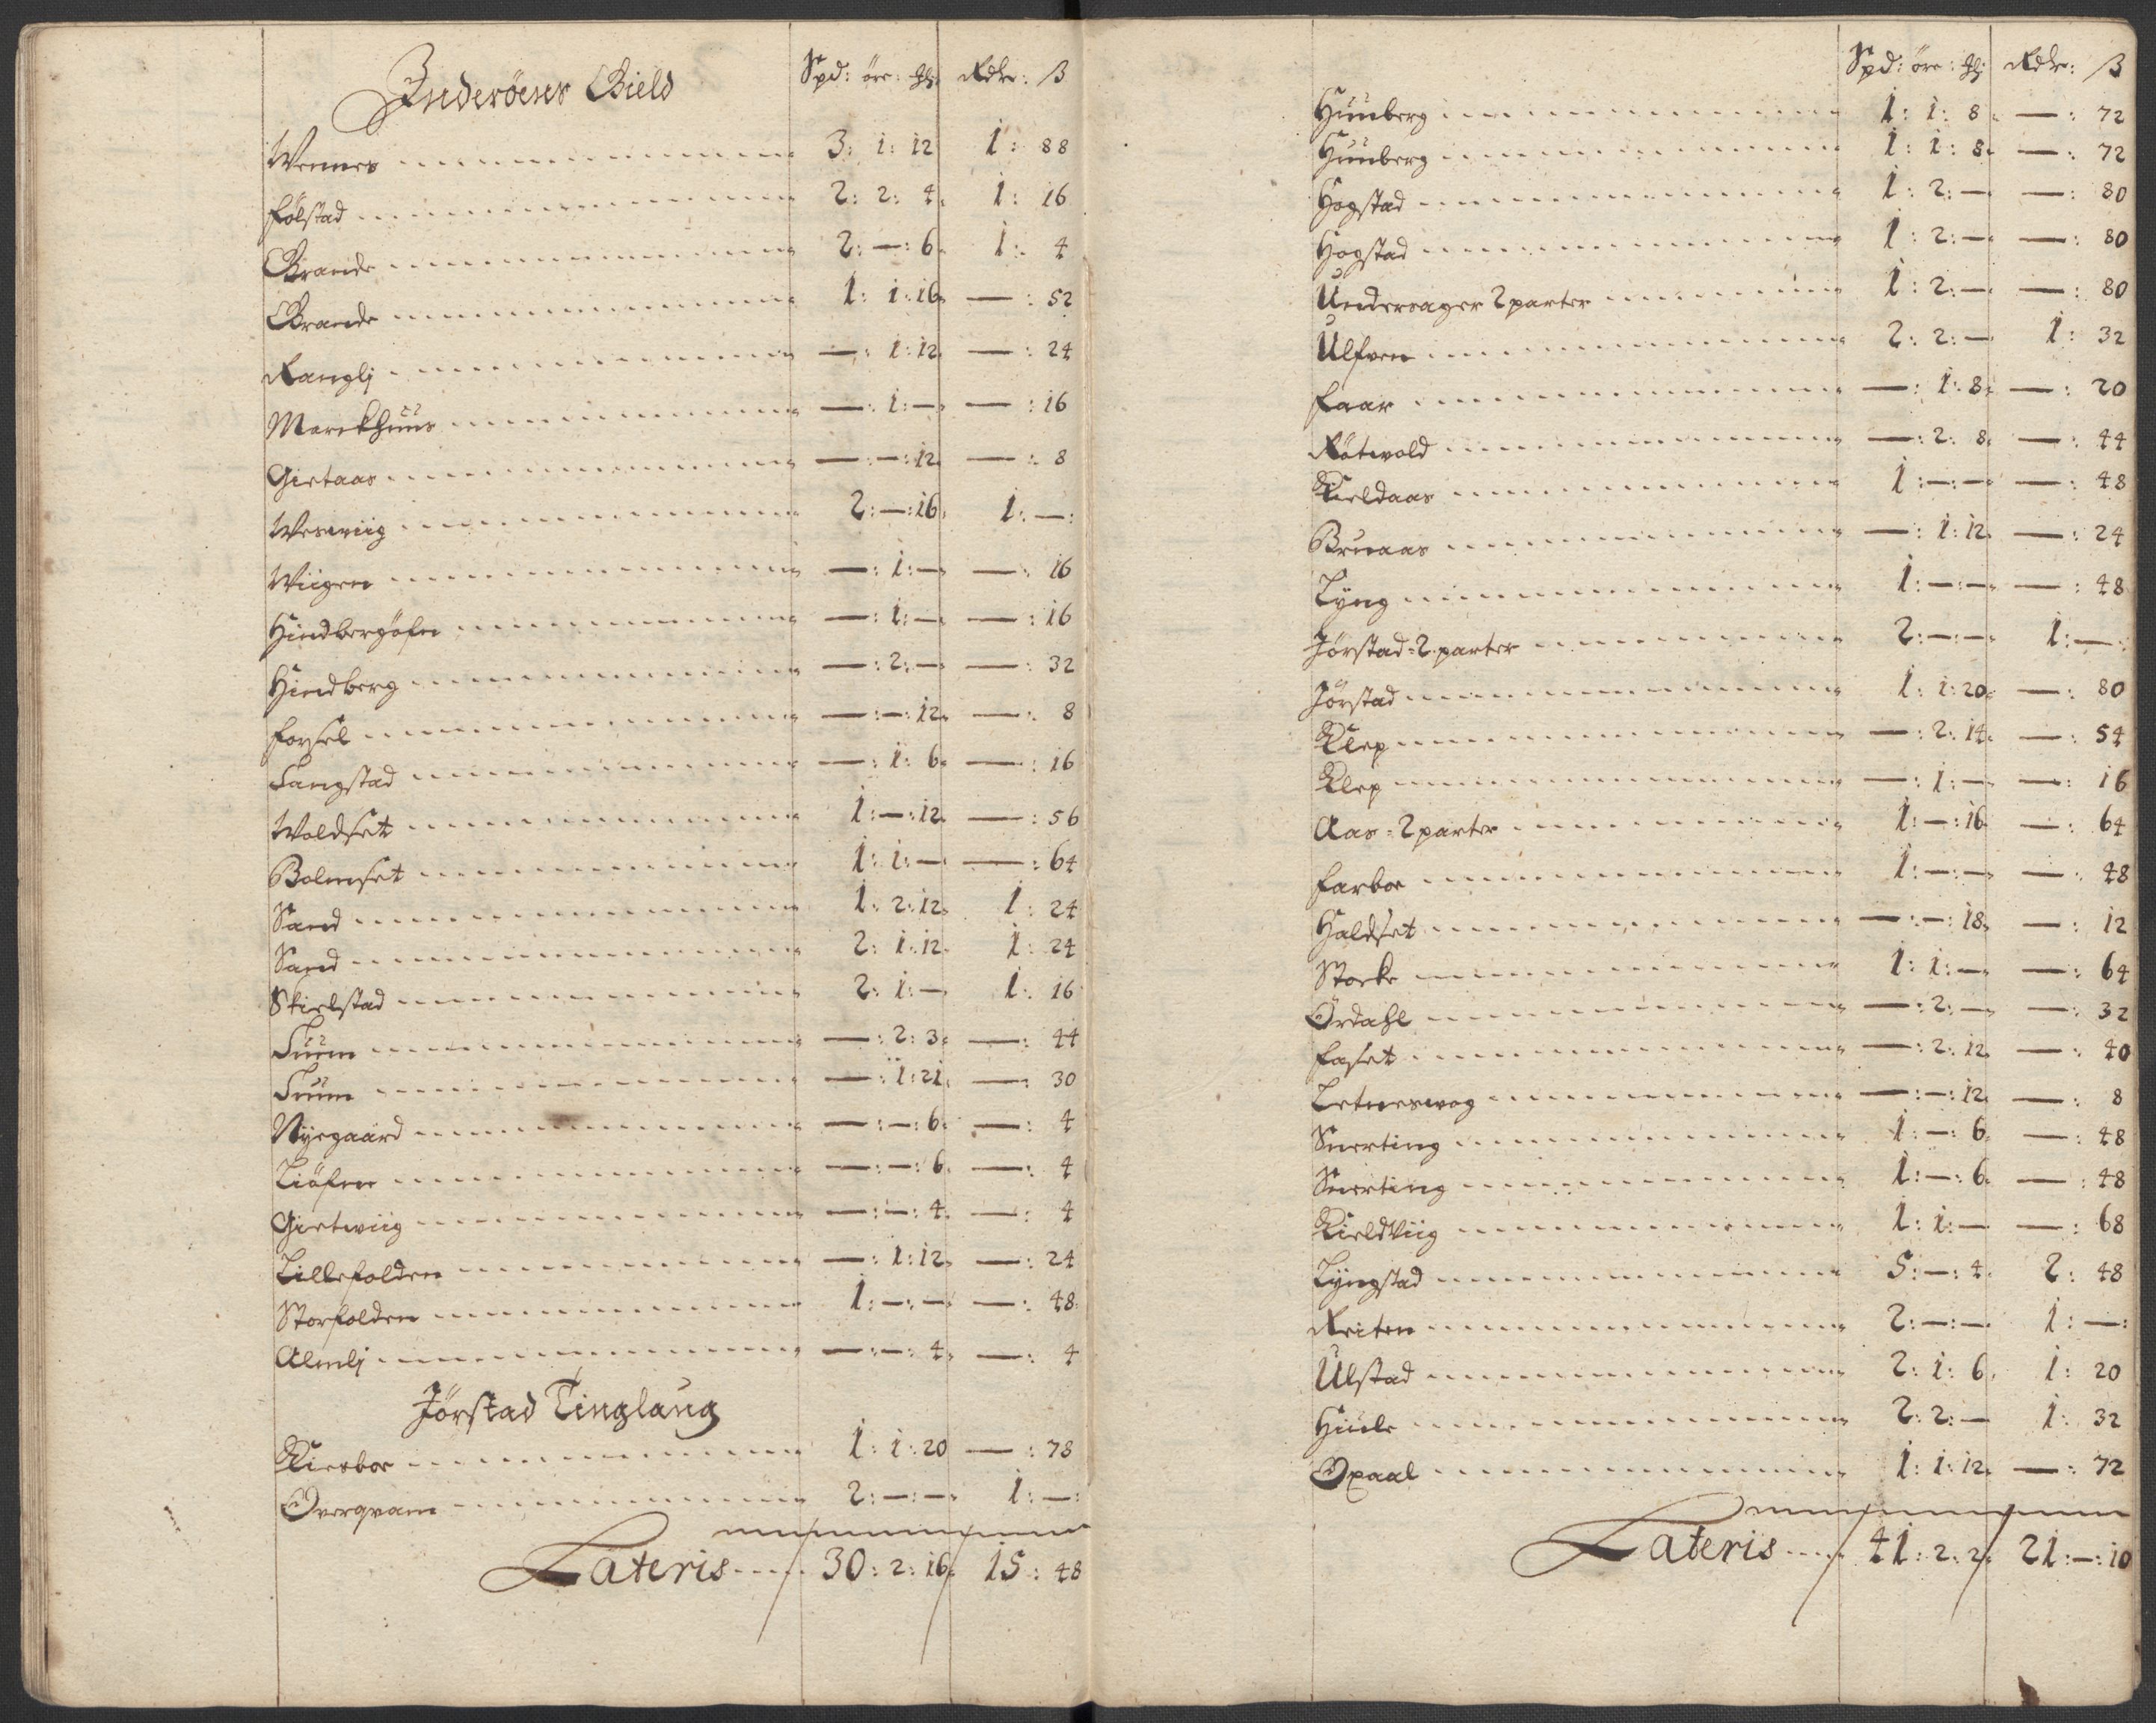 Inderöens Gield Spd: öre: ℔ Rdlr: ß
Wennes 3: 1: 12 1: 88
Følstad 2: 2: 4 1: 16
Grande 2: —: 6 1: 4
Grande 1: 1: 16 —: 52
Ranglj —: 1: 12 —: 24
Marckhuus —: 1: — —: 16
Gietaas —: —: 12 —: 8
Weswiig 2: —: 16 1: —:
Wiigen —: 1: — —: 16
Hindbergöfn —: 1: — —: 16
Hindberg —: 2: — —: 32
Forsel —: —: 12 —: 8
Langstad —: 1: 6 —: 16
Woldset 1: —: 12 —: 56
Bolmset 1: 1: — —: 64
Sand 1: 2: 12 1: 24
Sand 2: 1: 12 1: 24
Skielstad 2: 1: — 1: 16
Tuum —: 2: 3 —: 44
Tuum —: 1: 21 —: 30
Nyegaard —: —: 6 —: 4
Liöfnn —: —: 6 —: 4
Gietwiig —: —: 4 —: 4
Lillefolden —: 1: 12 —: 24
Storfolden 1: —: — —: 48
Almlj —: —: 4 —: 4
Jörstad Tinglaug
Kirsboe 1: 1: 20 —: 78
Overqvam 2: —: — 1: —:
Lateris 30: 2: 16 15: 48
Spd: öre: ℔ Rdlr: ß
Huuberg 1: 1: 8 —: 72
Huuberg 1: 1: 8 —: 72
Hogstad 1: 2: — —: 80
Hogstad 1: 2: — —: 80
Undersager 2 parter 1: 2: — —: 80
Ulfven 2: 2: — 1: 32
Faar —: 1: 8 —: 20
Rötwold —: 2: 8 —: 44
Kieldaas 1: —: — —: 48
Bruaas —: 1: 12 —: 24
Lyng 1: —: — —: 48
Jörstad - 2 parter 2: —: — 1: —:
Jörstad 1: 1: 20 —: 80
Klep —: 2: 14 —: 54
Klep —: 1: — —: 16
Aas - 2 parter 1: —: 16 —: 64
Farboe 1: —: — —: 48
Haldset —: —: 18 —: 12
Stocke 1: 1: — —: 64
Ördahl —: 2: — —: 32
Faset —: 2: 12 —: 40
Letneswog —: —: 12 —: 8
Snerting 1: —: 6 —: 48
Snerting 1: —: 6 —: 48
Kieldviig 1: 1: — —: 68
Lyngstad 5: —: 4 2: 48
Reiten 2: —: — 1: —:
Ulstad 2: 1: 6 1: 20
Huule 2: 2: — 1: 32
Opaal 1: 1: 12 —: 72
Lateris 41: 2: 2 21: —: 10